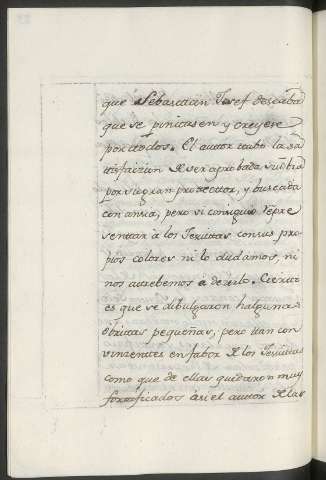 que Sebastian Josef deseaba
que se pintasen y creyese
por todos. El autor tubo la sa
tisfaizion de ser aprobada su obra
por su gran protector, y buscada
con ansia, pero si consiguio repre
sentar à los Jesuitas con sus pro
pios colores ni lo dudamos, ni
nos atrebemos à dezirlo. Cierto
es que se dibulgaron halgunas
obritas pequeñas, pero tan con
vinzentes en fabor de los Jesuitas
como que de ellas quedaron muy
fortificados asi el autor de las